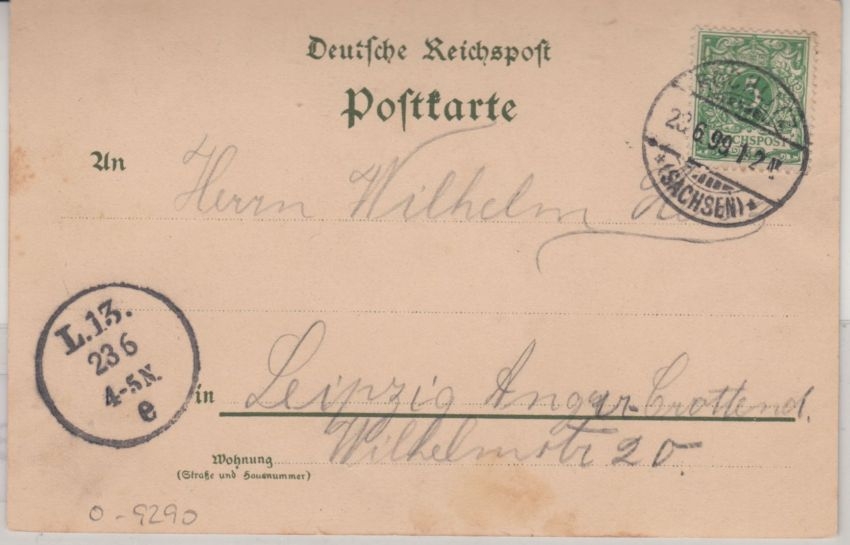 Deutsche Reichspost
Postkarte
5
REICHSPOST
23.6.99 1-2N
(SACHSEN)
An
Herrn Wilhelm
L.13.
23 6
4-5N.
e
in
Leipzig Anger-Crottend.
Wilhelmstr 20
Wohnung
(Straße und Hausnummer)
0-9290